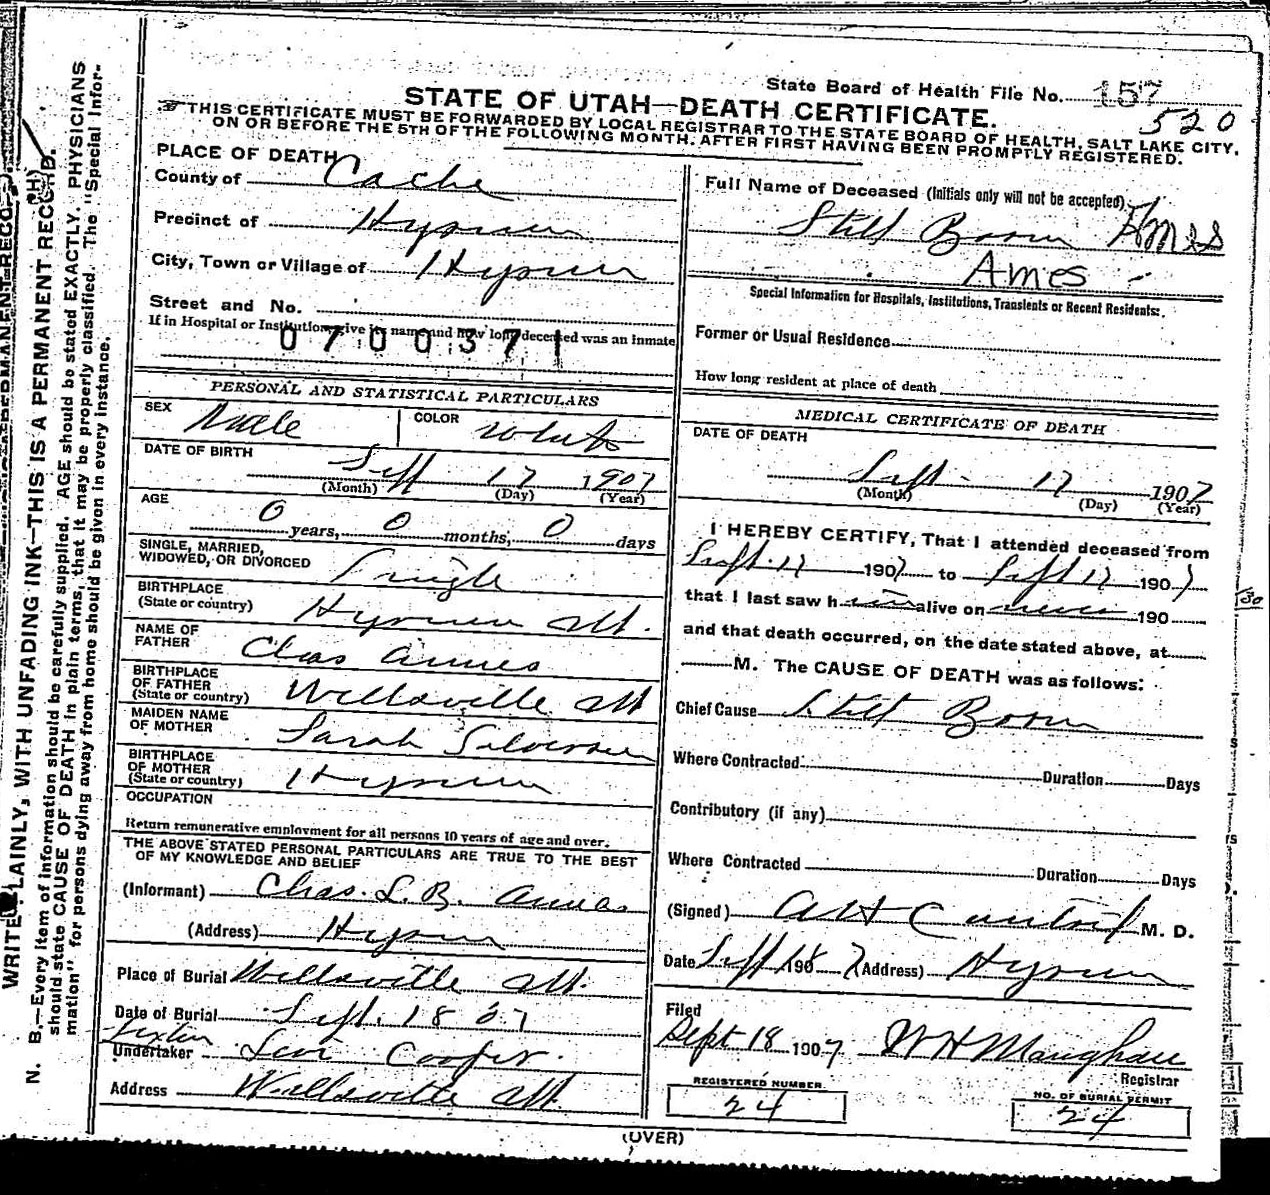 State Board of Health File No. 157
520
STATE OF UTAH—DEATH CERTIFICATE.
THIS CERTIFICATE MUST BE FORWARDED BY LOCAL REGISTRAR TO THE STATE BOARD OF HEALTH, SALT LAKE CITY,
ON OR BEFORE THE 5TH OF THE FOLLOWING MONTH. AFTER FIRST HAVING BEEN PROMPTLY REGISTERED.
PLACE OF DEATH
County of Cache
Precinct of Hyrum
City, Town or Village of Hyrum
Street and No.
If in Hospital or Institution give its name and how long deceased was an inmate
0700371
PERSONAL AND STATISTICAL PARTICULARS
SEX Male COLOR White
DATE OF BIRTH
Sept 17 1907
(Month) (Day) (Year)
AGE
0 years, 0 months, 0 days
SINGLE, MARRIED,
WIDOWED, OR DIVORCED Single
BIRTHPLACE
(State or country) Hyrum Ut.
NAME OF
FATHER Chas Ames
BIRTHPLACE
OF FATHER
(State or country) Wellsville Ut
MAIDEN NAME
OF MOTHER Sarah
BIRTHPLACE
OF MOTHER
(State or country) Hyrum
OCCUPATION
Return remunerative employment for all persons 10 years of age and over.
THE ABOVE STATED PERSONAL PARTICULARS ARE TRUE TO THE BEST
OF MY KNOWLEDGE AND BELIEF
(Informant) Chas. L. B. Ames
(Address) Hyrum
Place of Burial Wellsville Ut.
Date of Burial Sept. 18 07
Sexton
Undertaker Levi Cooper.
Address Wellsville Ut
Full Name of Deceased (Initials only will not be accepted)
Still Born Ames
Ames
Special Information for Hospitals, Institutions, Transients or Recent Residents:
Former or Usual Residence
How long resident at place of death
MEDICAL CERTIFICATE OF DEATH
DATE OF DEATH
Sept. 17 1907
(Month) (Day) (Year)
I HEREBY CERTIFY, That I attended deceased from
Sept. 17 1907 to Sept 17 1907
that I last saw him alive on never 190
and that death occurred, on the date stated above, at
M. The CAUSE OF DEATH was as follows:
Chief Cause Still Born
Where Contracted Duration Days
Contributory (if any)
Where Contracted Duration Days
(Signed) M. D.
Date Sept 18 1907 (Address) Hyrum
Filed
Sept 18 1907 W H Maughan
Registrar
REGISTERED NUMBER
24
NO. OF BURIAL PERMIT
24
(OVER)
WRITE PLAINLY, WITH UNFADING INK—THIS IS A PERMANENT RECORD.
N. B.—Every item of information should be carefully supplied. AGE should be stated EXACTLY. PHYSICIANS
should state CAUSE OF DEATH in plain terms, that it may be properly classified. The "Special Infor-
mation" for persons dying away from home should be given in every instance.